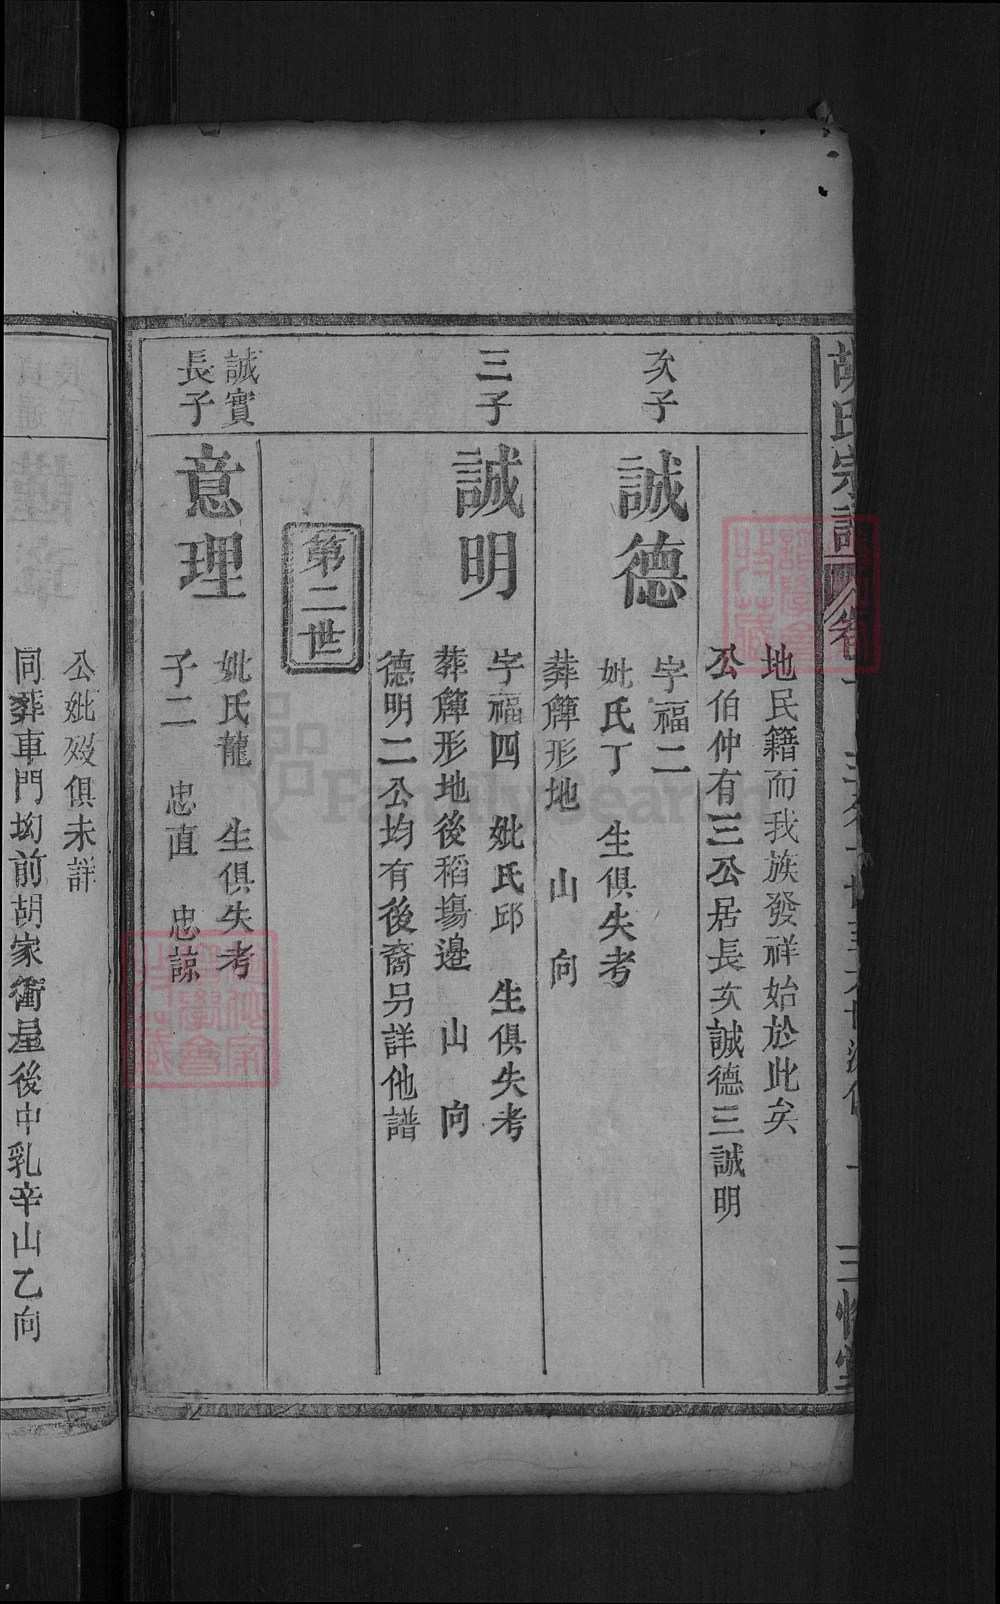 胡氏宗譜
卷
三
地民籍而我族發祥始於此矣
公伯仲有三公居長次誠德三誠明
次子
誠德
字福二
妣氏丁 生俱失考
葬簰形地 山 向
三子
誠明
字福四 妣氏邱 生俱失考
葬簰形地後稻塲邊 山 向
德明二公均有後裔另詳他譜
第二世
誠實
長子
意理
妣氏龍 生俱失考
子二 忠直 忠諒
公妣歿俱未詳
同葬車門坳前胡家衝屋後中乳辛山乙向
FamilySearch